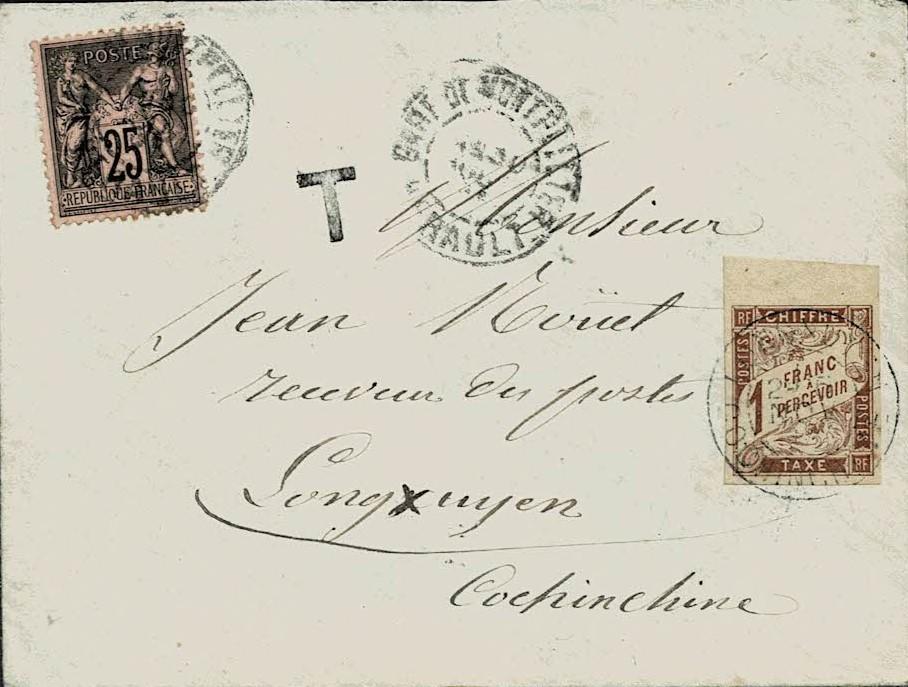 POSTE
25
RÉPUBLIQUE FRANÇAISE
T
GARE DE MONTPELLIER
HÉRAULT
Monsieur
Jean Noüet
receveur des postes
Longxuyen
Cochinchine
RF CHIFFRE
POSTES
1 FRANC
À
PERCEVOIR
POSTES
TAXE RF